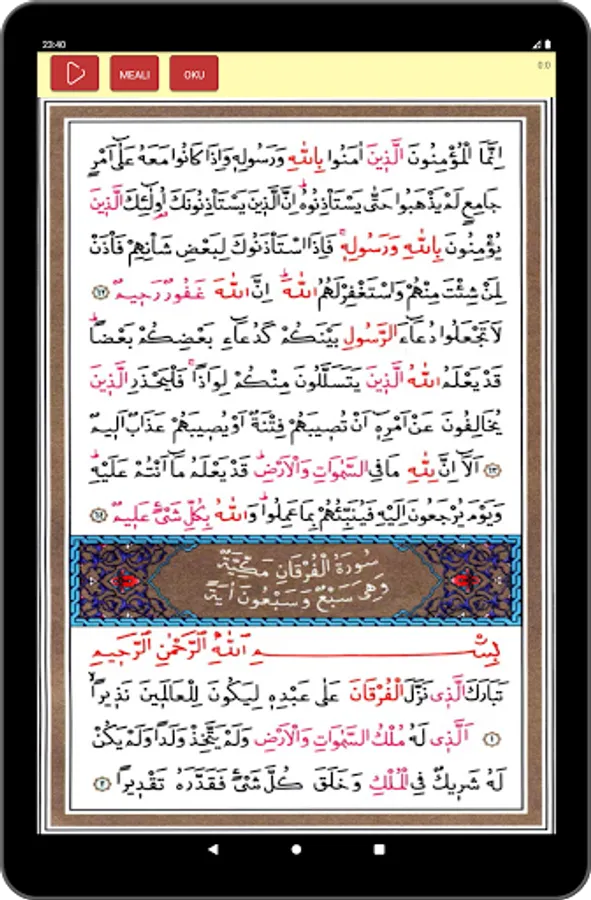 23:40
MEALI OKU 0:0
اِنَّمَا الْمُؤْمِنُونَ الَّذٖينَ اٰمَنُوا بِاللّٰهِ وَرَسُولِهٖ وَاِذَا كَانُوا مَعَهُ عَلٰٓى اَمْرٍ
جَامِعٍ لَمْ يَذْهَبُوا حَتّٰى يَسْتَأْذِنُوهُۜ اِنَّ الَّذٖينَ يَسْتَأْذِنُونَكَ اُو۬لٰٓئِكَ الَّذٖينَ
يُؤْمِنُونَ بِاللّٰهِ وَرَسُولِهٖۚ فَاِذَا اسْتَأْذَنُوكَ لِبَعْضِ شَأْنِهِمْ فَأْذَنْ
لِمَنْ شِئْتَ مِنْهُمْ وَاسْتَغْفِرْ لَهُمُ اللّٰهَۜ اِنَّ اللّٰهَ غَفُورٌ رَحٖيمٌ ﴿٦٢﴾
لَا تَجْعَلُوا دُعَٓاءَ الرَّسُولِ بَيْنَكُمْ كَدُعَٓاءِ بَعْضِكُمْ بَعْضًاۜ
قَدْ يَعْلَمُ اللّٰهُ الَّذٖينَ يَتَسَلَّلُونَ مِنْكُمْ لِوَاذًاۚ فَلْيَحْذَرِ الَّذٖينَ
يُخَالِفُونَ عَنْ اَمْرِهٖٓ اَنْ تُصٖيبَهُمْ فِتْنَةٌ اَوْ يُصٖيبَهُمْ عَذَابٌ اَلٖيمٌ
﴿٦٣﴾ اَلَٓا اِنَّ لِلّٰهِ مَا فِي السَّمٰوَاتِ وَالْاَرْضِۜ قَدْ يَعْلَمُ مَٓا اَنْتُمْ عَلَيْهِۜ
وَيَوْمَ يُرْجَعُونَ اِلَيْهِ فَيُنَبِّئُهُمْ بِمَا عَمِلُواۜ وَاللّٰهُ بِكُلِّ شَيْءٍ عَلٖيمٌ ﴿٦٤﴾
سُورَةُ الْفُرْقَانِ مَكِّيَّةٌ
وَهِيَ سَبْعٌ وَسَبْعُونَ اٰيَةً
بِسْمِ اللّٰهِ الرَّحْمٰنِ الرَّحٖيمِ
تَبَارَكَ الَّذٖي نَزَّلَ الْفُرْقَانَ عَلٰى عَبْدِهٖ لِيَكُونَ لِلْعَالَمٖينَ نَذٖيرًاۙ
﴿١﴾ اَلَّذٖي لَهُ مُلْكُ السَّمٰوَاتِ وَالْاَرْضِ وَلَمْ يَتَّخِذْ وَلَدًا وَلَمْ يَكُنْ
لَهُ شَرٖيكٌ فِي الْمُلْكِ وَخَلَقَ كُلَّ شَيْءٍ فَقَدَّرَهُ تَقْدٖيرًا ﴿٢﴾